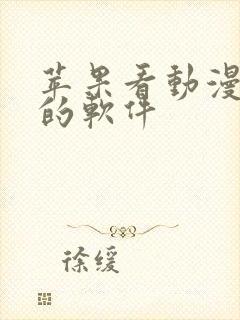 苹果看動漫
的軟件
徐缓